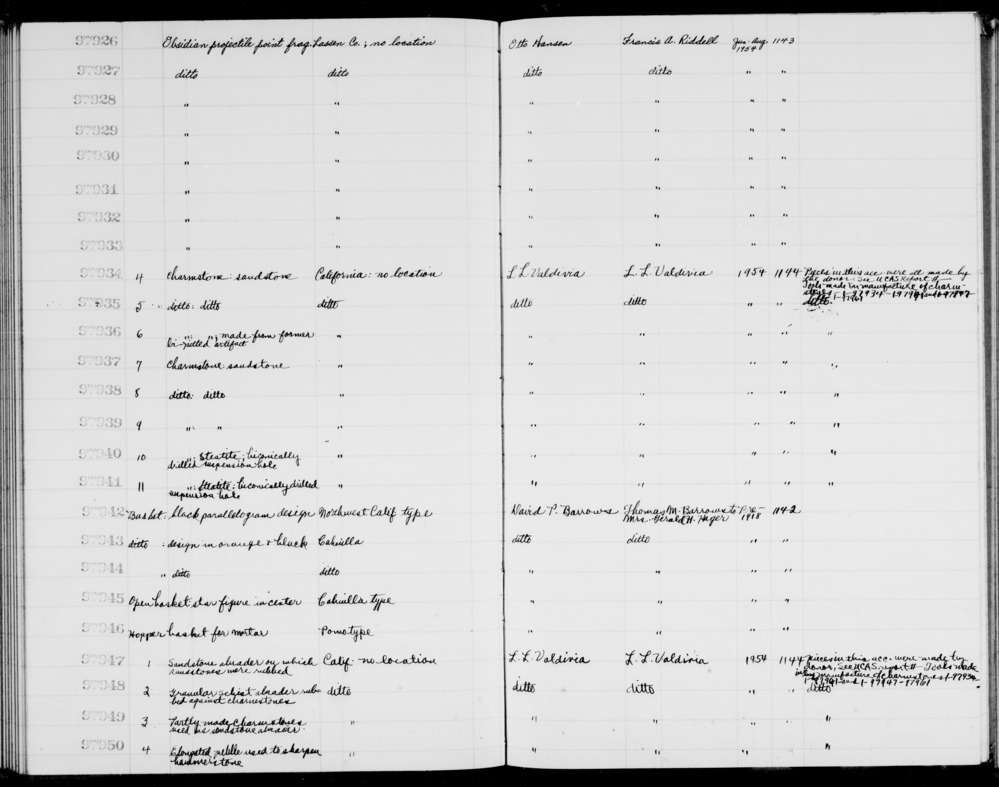 97926 Obsidian projectile point frag. Lassen Co.; no location Otto Hansen Francis A. Riddell Jun-Aug. 1954 1143
97927 ditto ditto ditto ditto " "
97928 " " " " " "
97929 " " " " " "
97930 " " " " " "
97931 " " " " " "
97932 " " " " " "
97933 " " " " " "
97934 4 Charmstone: sandstone California: no location L. L. Valdivia L. L. Valdivia 1954 1144 Pieces in this acc. were all made by
the donor. See UCAS Report #
Tools made in manufacture of charm-
stones 1-97934-
97935 5 ditto: ditto ditto ditto ditto " " ditto 1-97961
97936 6 ": "; made from former
bi-pitted artifact " " " " " "
97937 7 Charmstone: sandstone " " " " " "
97938 8 ditto: ditto " " " " " "
97939 9 ": " " " " " " "
97940 10 ": Steatite; biconically
drilled suspension hole " " " " " "
97941 11 ": Steatite: biconically drilled
suspension hole " " " " " "
97942 Basket; black parallelogram design Northwest Calif type David P. Barrows Thomas M. Barrows to
Mrs. Gerald H. Hager Pre-
1918 1142
97943 ditto : design in orange & black Cahuilla ditto ditto " "
97944 " ditto ditto " " " "
97945 Open basket star figure in center Cahuilla type " " " "
97946 Hopper basket for mortar Pomo type " " " "
97947 1 Sandstone abrader on which
charmstones were rubbed Calif. no location L. L. Valdivia L. L. Valdivia 1954 1144 Pieces in this acc. were made by
donor, see UCAS report # - Tools made
in manufacture of charmstones 1-97934-
1-97941 and 1-97947-97961
97948 2 Granular schist abrader rub-
bed against charmstones ditto ditto ditto " " Ditto
97949 3 Partly made charmstones
used as sandstone abrader " " " " " "
97950 4 Elongated pebble used to sharpen
hammerstone " " " " " "